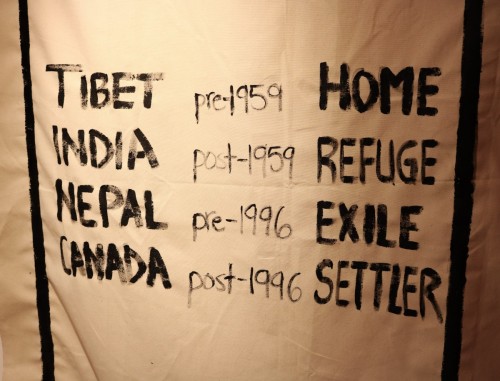 TIBET pre-1959 HOME
INDIA post-1959 REFUGE
NEPAL pre-1996 EXILE
CANADA post-1996 SETTLER